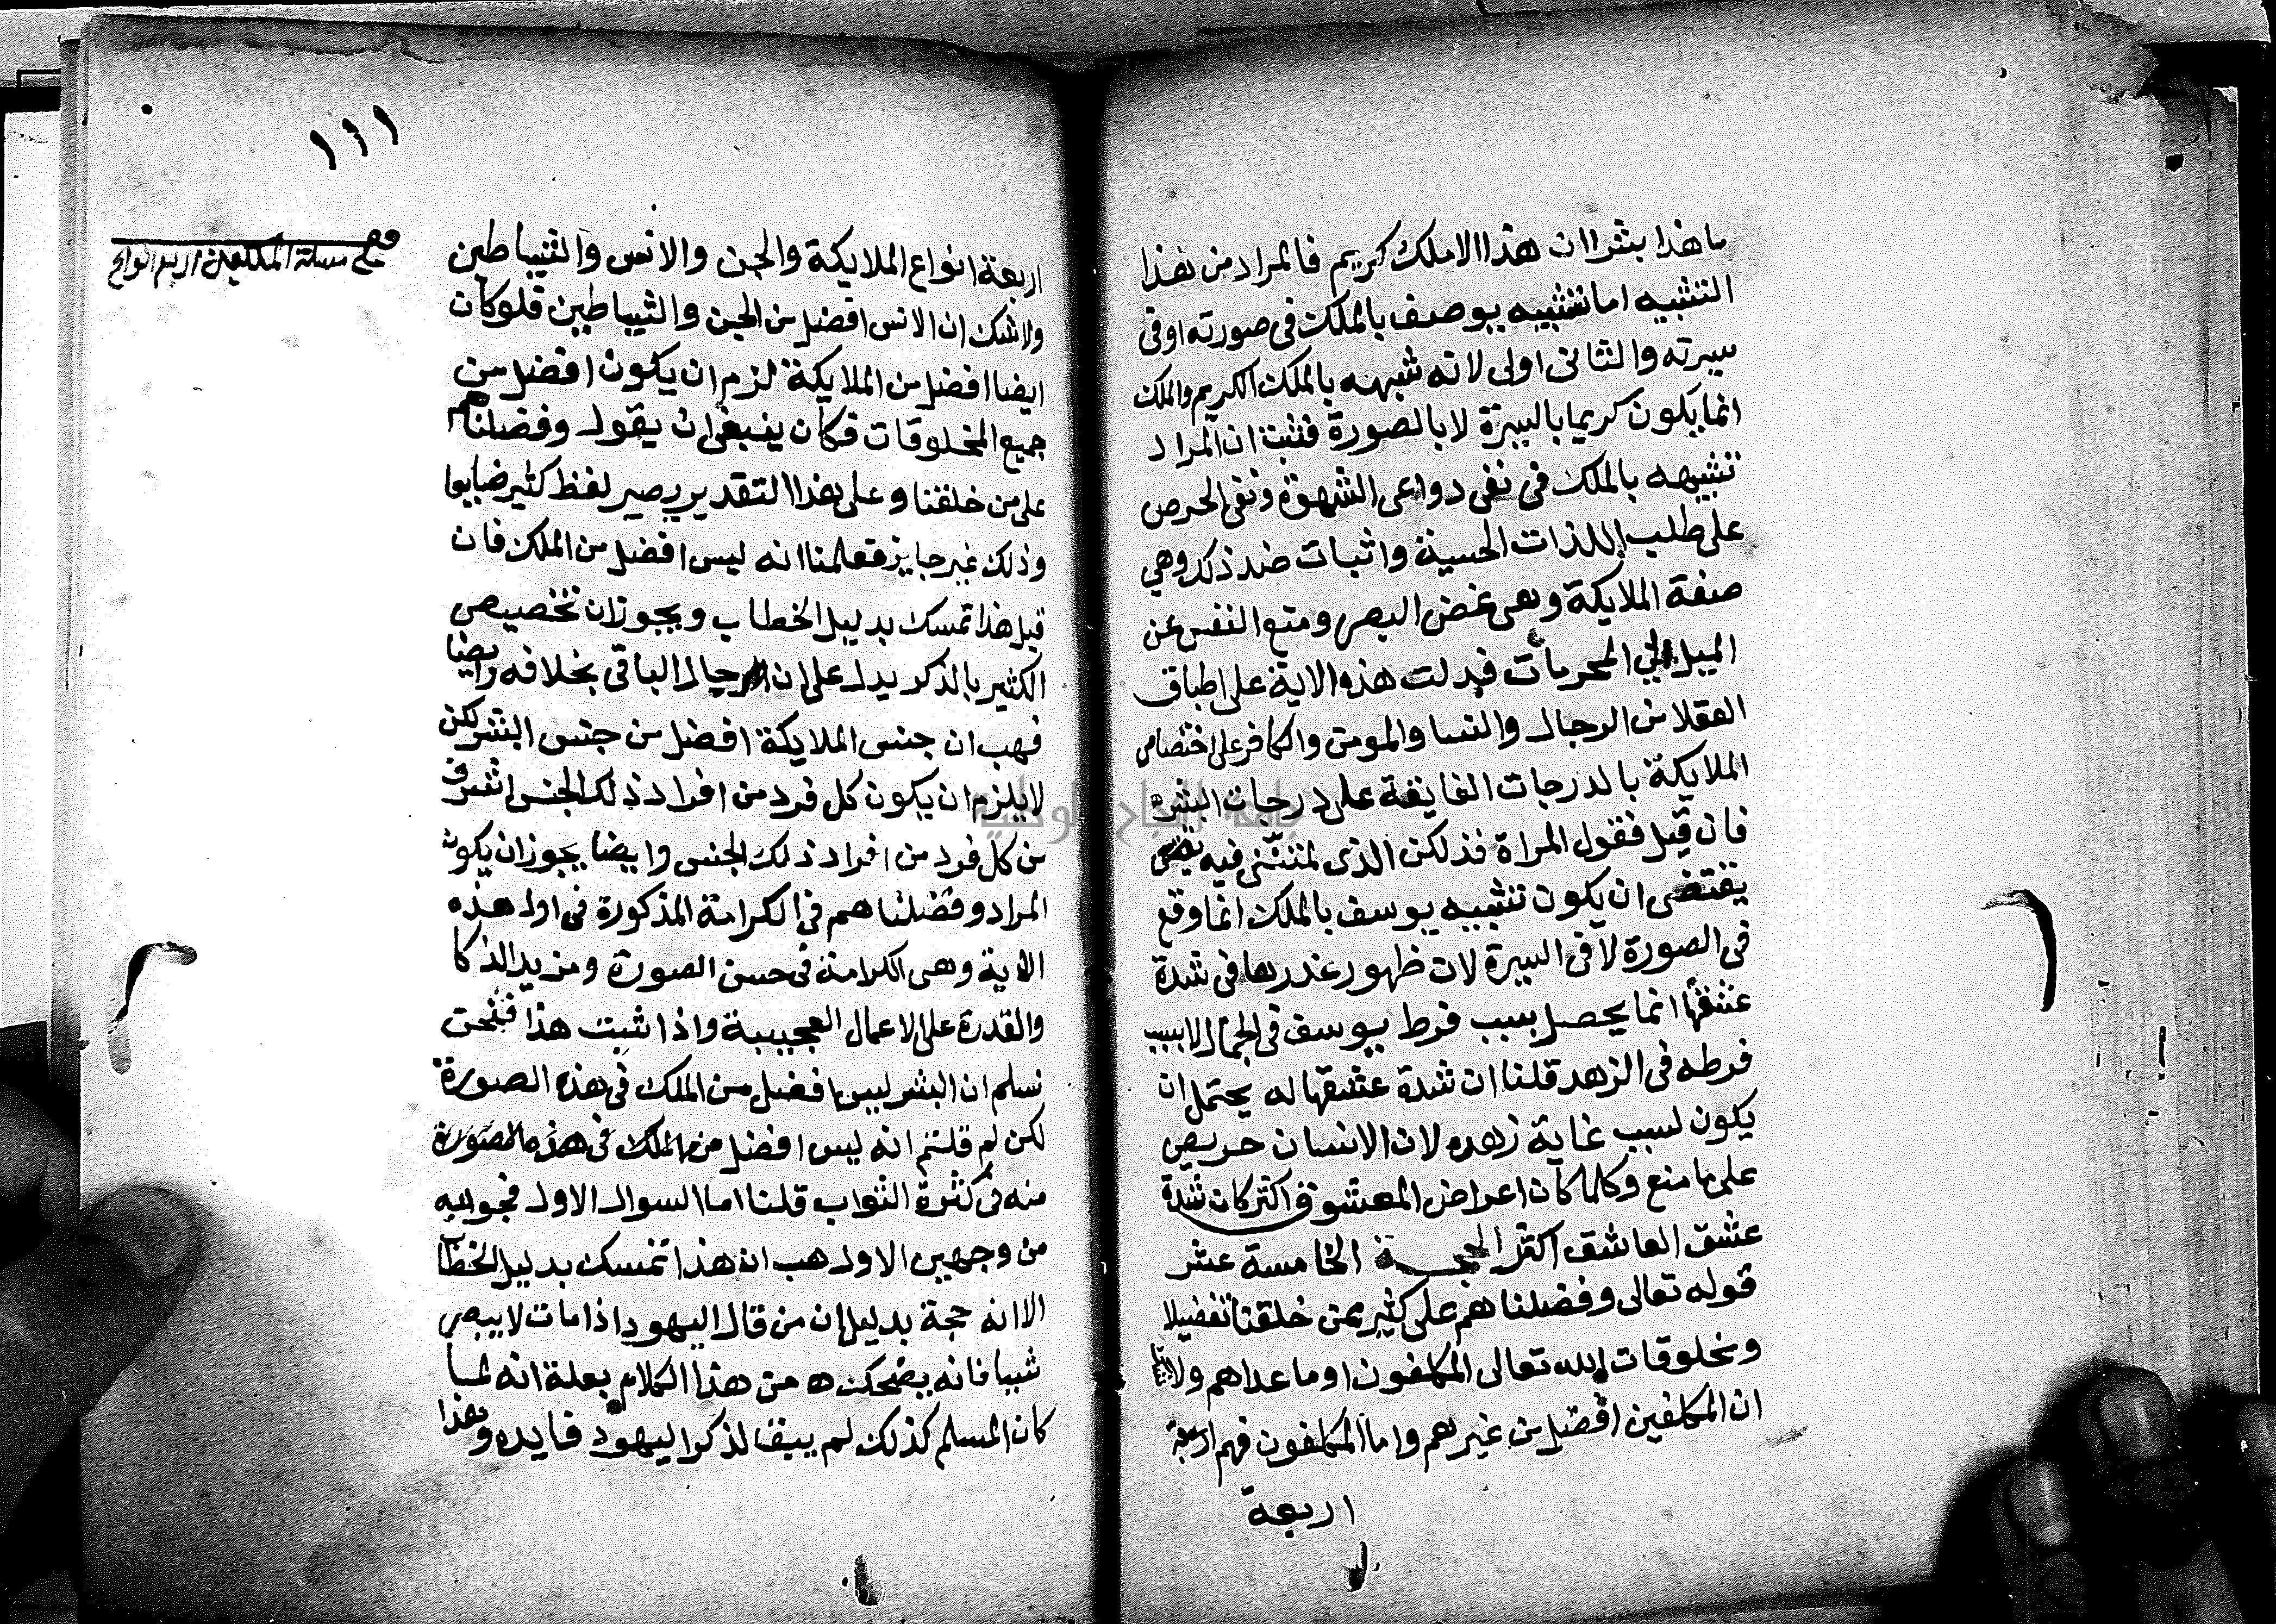 ما هذا بشرا ان هذا الا ملك كريم فالمراد من هذا
التشبيه اما تشبيه يوسف بالملك فى صورته او فى
سيرته والثانى اولى لانه شبهه بالملك الكريم والملك
انما يكون كريما بالسيرة لا بالصورة فثبت ان المراد
تشبيهه بالملك فى نفى دواعى الشهوة ونفى الحرص
على طلب اللذات الحسية واثبات ضد ذلك وهي
صفة الملايكة وهى غض البصر ومنع النفس عن
الميل الي المحرمات فدلت هذه الاية على اطباق
العقلا من الرجال والنسا والمومن والكافر على اختصاص
الملايكة بالدرجات الفايقة على درجات البشر
فان قيل فقول المراة فذلكن الذى لمتننى فيه
يقتضى ان يكون تشبيه يوسف بالملك انما وقع
فى الصورة لا فى السيرة لان ظهور عذرها فى شدة
عشقها انما يحصل بسبب فرط يوسف فى الجمال لا بسبب
فرطه فى الزهد قلنا ان شدة عشقها له يحتمل ان
يكون لسبب غاية زهده لان الانسان حريص
على ما منع وكلما كان اعراض المعشوق اكثر كان شدة
عشق العاشق اكثر الحجة الخامسة عشر
قوله تعالى وفضلناهم على كثير ممن خلقنا تفضيلا
ومخلوقات الله تعالى المكلفون او ما عداهم ولا
ان المكلفين افضل من غيرهم واما المكلفون فهم اربعة
اربعة
١١١
اربعة انواع الملايكة والجن والانس والشياطين
ولا شك ان الانس افضل من الجن والشياطين فلو كان
ايضا افضل من الملايكة لزم ان يكون افضل من
جميع المخلوقات فكان ينبغى ان يقول وفضلناهم
على من خلقنا وعلى هذا التقدير يصير لفظ كثير ضايعا
وذلك غير جايز فعلمنا انه ليس افضل من الملك فان
قيل هذا تمسك بدليل الخطاب ويجوز ان تخصيص
الكثير بالذكر يدل على ان حال الباقى بخلافه وايضا
فهب ان جنس الملايكة افضل من جنس البشر لكن
لا يلزم ان يكون كل فرد من افراد ذلك الجنس اشرف
من كل فرد من افراد ذلك الجنس وايضا يجوز ان يكون
المراد وفضلناهم فى الكرامة المذكورة فى اول هذه
الاية وهى الكرامة فى حسن الصورة ومزيد الذكا
والقدرة على الاعمال العجيبة واذا ثبت هذا فنحن
نسلم ان البشر ليس افضل من الملك فى هذه الصورة
لكن لم قلتم انه ليس افضل من الملك فى هذه الصورة
منه فى كثرة الثواب قلنا اما السوال الاول فجوابه
من وجهين الاول هب ان هذا تمسك بدليل الخطا
الا انه حجة بدليل ان من قال اليهود اذا مات لا يبصر
شيا فانه يضحك من هذا الكلام بعلة انه لما
كان المسلم كذلك لم يبقا لذكر اليهود فايده وهذا